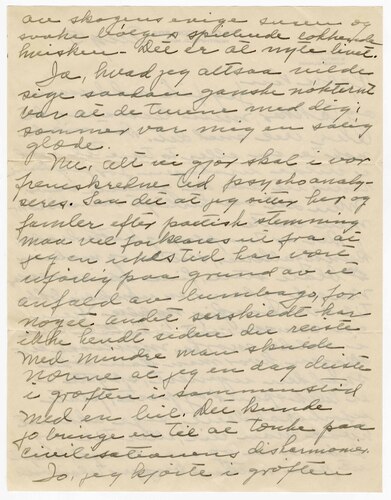 av skogens evige susen og
svake bølges spillende lokkende
hvisken. Det er at nyte livet.
Ja, hvad jeg altsaa vilde
sige saadan ganske nøkternt
var at de turene med dig i
sommer var mig en salig
glæde.
Nu, alt vi gjør skal i vor
fremskredne tid psychoanaly-
seres. Saa det at jeg sitter her og
famler efter poetisk stemning
maa vel forklares ut fra at
jeg en ukes tid har vært
ufør paa grund av et
anfald av lumbago, for
noget andet serskildt har
ikke hendt siden du reiste
med mindre man skulde
nævne at jeg en dag deiste
i grøften i sammenstød
med en bil. Det kunde
jo bringe en til at tænke paa
civilisationens disharmonier.
Jo, jeg kjørte i grøften